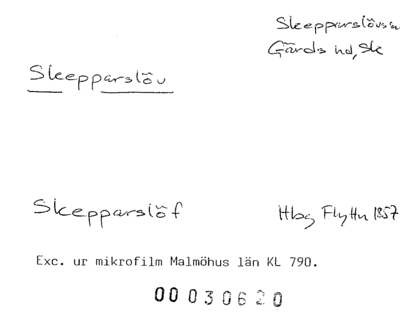 Skepparslövs sn
Gärds hd, Sk
Skepparslöv
Skepparslöf
Hbg Flyttn 1857
Exc. ur mikrofilm Malmöhus län KL 790.
00 030620